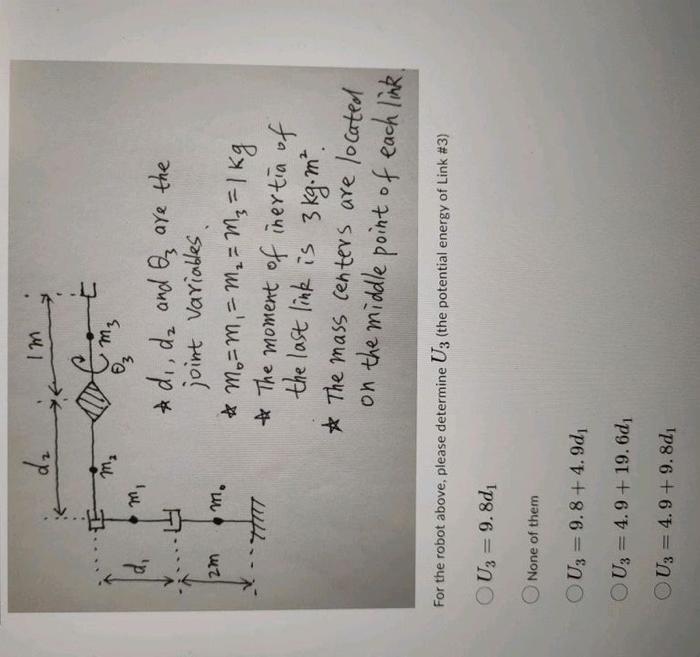 d₂
1 m
m₂
θ₃
m₃
d₁
m₁
2m
m₀
* d₁, d₂ and θ₃ are the
joint variables.
* m₀=m₁=m₂=m₃=1 kg
* The moment of inertia of
the last link is 3 kg·m².
* The mass centers are located
on the middle point of each link.
For the robot above, please determine U₃ (the potential energy of Link #3)
U₃ = 9.8d₁
None of them
U₃ = 9.8 + 4.9d₁
U₃ = 4.9 + 19.6d₁
U₃ = 4.9 + 9.8d₁